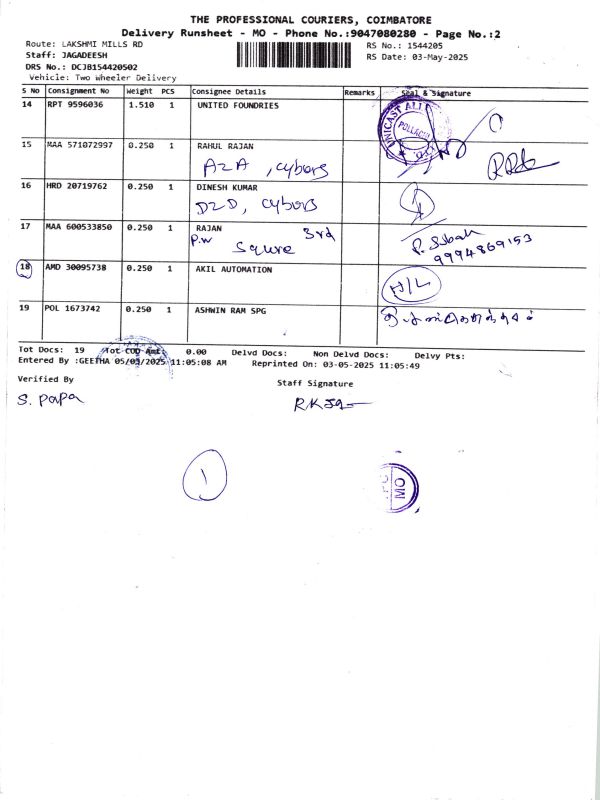 THE PROFESSIONAL COURIERS, COIMBATORE
Delivery Runsheet - MO - Phone No.:9047080280 - Page No.:2
Route: LAKSHMI MILLS RD
RS No.: 1544205
Staff: JAGADEESH
RS Date: 03-May-2025
DRS No.: DCJB154420502
Vehicle: Two Wheeler Delivery
S No Consignment No Weight PCS Consignee Details Remarks Seal & Signature
14 RPT 9596036 1.510 1 UNITED FOUNDRIES
UNICAST ALL
POLLACHI
15 MAA 571072997 0.250 1 RAHUL RAJAN
A2A , Cybors
16 HRD 20719762 0.250 1 DINESH KUMAR
D2D, Cybors
17 MAA 600533850 0.250 1 RAJAN
P.W Squre 3rd
9994869153
18 AMD 30095738 0.250 1 AKIL AUTOMATION
H/L
19 POL 1673742 0.250 1 ASHWIN RAM SPG
Tot Docs: 19 Tot COD Amt: 0.00 Delvd Docs: Non Delvd Docs: Delvy Pts:
Entered By :GEETHA 05/03/2025 11:05:08 AM Reprinted On: 03-05-2025 11:05:49
Verified By
Staff Signature
S. Papa
1
MO